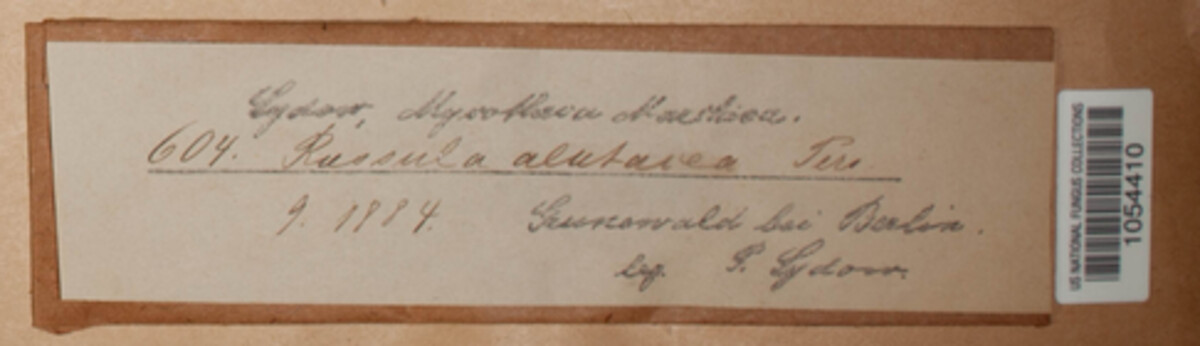 Sydow, Mycotheca Marchica.
604. Russula alutacea Pers
9. 1884. Grunewald bei Berlin.
leg. P. Sydow.
US NATIONAL FUNGUS COLLECTIONS
1054410